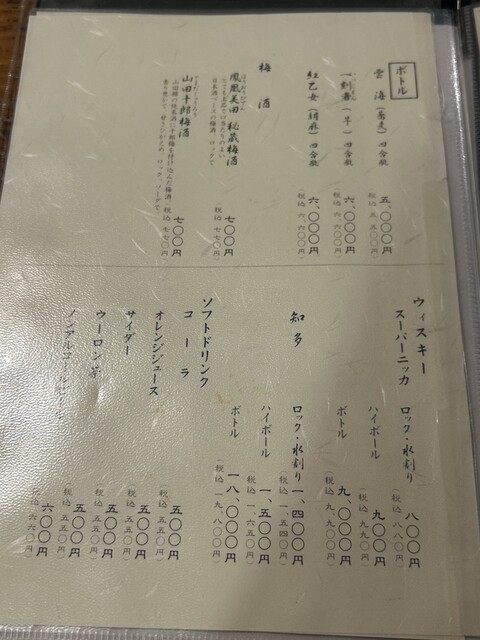 ボトル
雲海(蕎麦)四合瓶 五、〇〇〇円
(税込 五、五〇〇円)
一刻者(芋)四合瓶 六、〇〇〇円
(税込 六、六〇〇円)
紅乙女(胡麻)四合瓶 六、〇〇〇円
(税込 六、六〇〇円)
梅酒
鳳凰美田 秘蔵梅酒 七〇〇円
(税込 七七〇円)
日本酒ベースの梅酒、ロックで。
山田十郎梅酒 七〇〇円
山田錦の純米酒に十郎梅を付け込んだ梅酒。(税込 七七〇円)
香り豊かで、甘さひかえめ、ロック、ソーダで。
ウィスキー
スーパーニッカ ロック・水割り 八〇〇円
(税込 八八〇円)
ハイボール 九〇〇円
(税込 九九〇円)
ボトル 九、〇〇〇円
(税込 九、九〇〇円)
知多 ロック・水割り 一、四〇〇円
(税込 一、五四〇円)
ハイボール 一、五〇〇円
(税込 一、六五〇円)
ボトル 一八、〇〇〇円
(税込 一九、八〇〇円)
ソフトドリンク
コーラ 五〇〇円
(税込 五五〇円)
オレンジジュース 五〇〇円
(税込 五五〇円)
サイダー 五〇〇円
(税込 五五〇円)
ウーロン茶 五〇〇円
(税込 五五〇円)
ノンアルコールビール 六〇〇円
(税込 六六〇円)